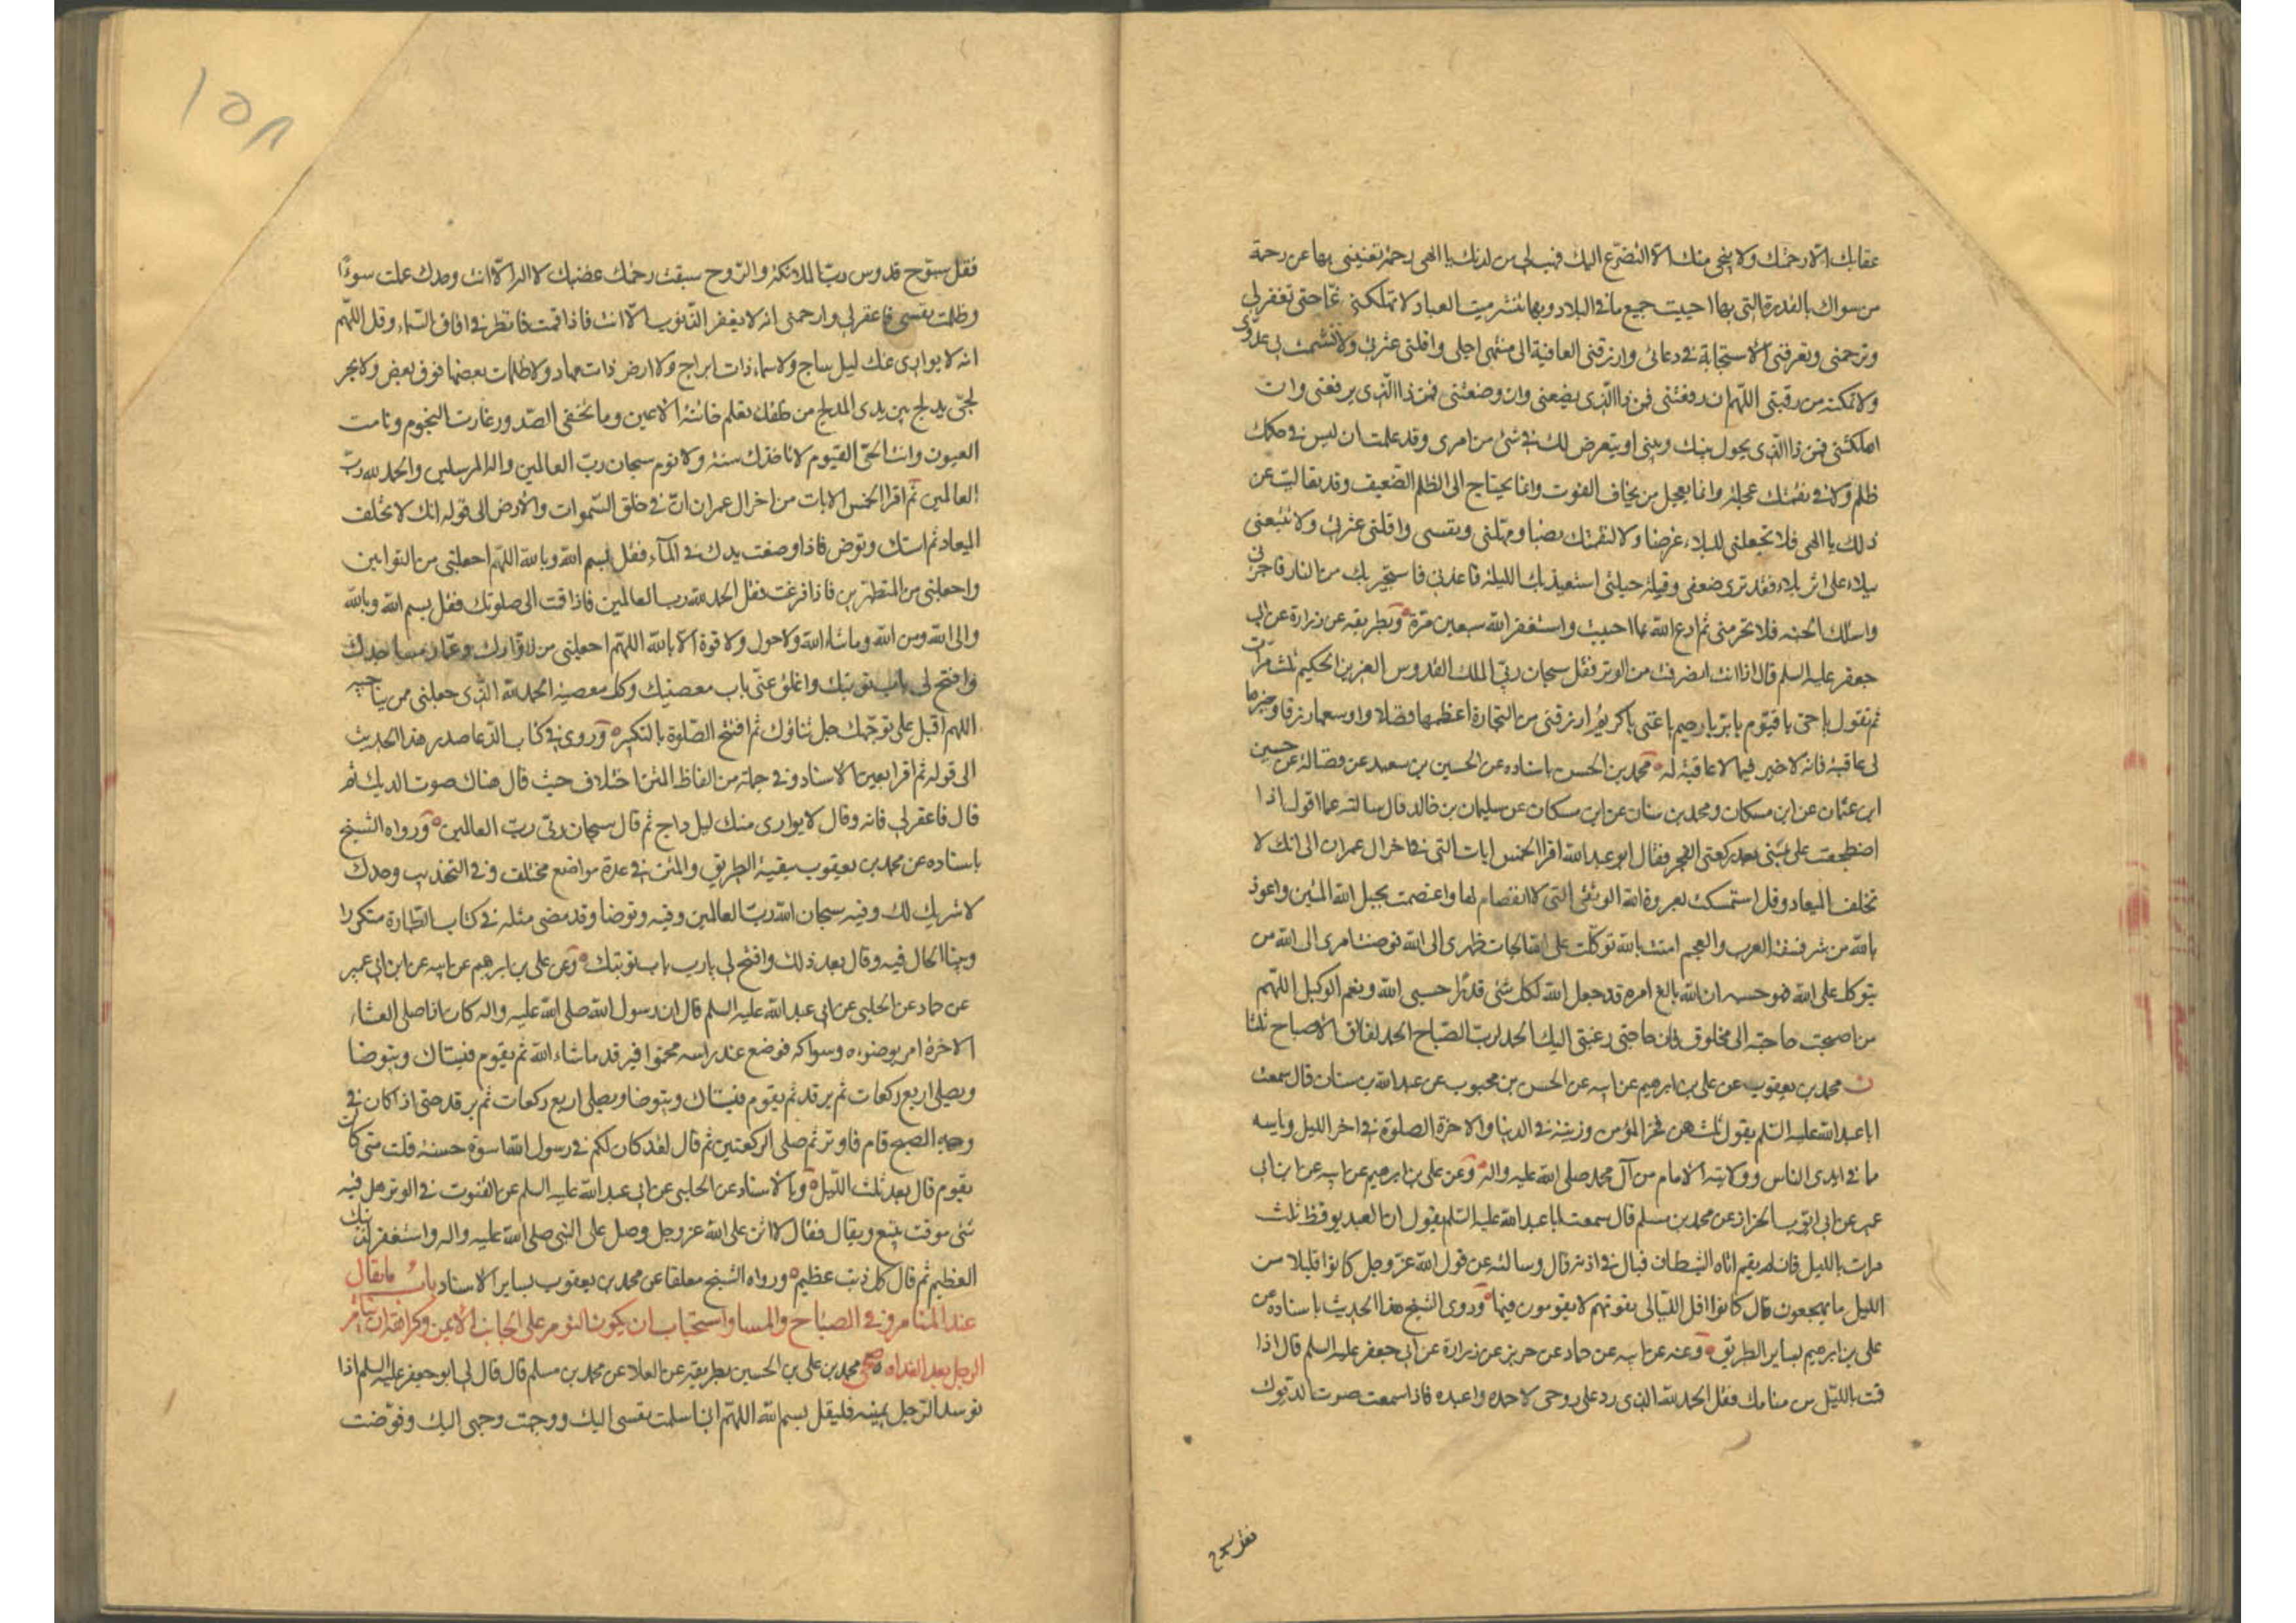 عقابك الا رحمتك ولا ينجي منك الا التضرع اليك فهب لي من لدنك يا الهي رحمة تغنيني بها عن رحمة
من سواك بالقدرة التي بها احييت جميع ما في البلاد وبها تنشر ميت العباد لا تهلكني غما حتى تغفر لي
وترحمني وتعرفني الاستجابة في دعائي وارزقني العافية الى منتهى اجلي واقلني عثرتي ولا تشمت بي عدوي
ولا تمكنه من رقبتي اللهم ان رفعتني فمن ذا الذي يضعني وان وضعتني فمن ذا الذي يرفعني وان
اهلكتني فمن ذا الذي يحول بينك وبيني او يتعرض لك في شئ من امري وقد علمت ان ليس في حكمك
ظلم ولا في نقمتك عجلة وانما يعجل من يخاف الفوت وانما يحتاج الى الظلم الضعيف وقد تعاليت عن
ذلك يا الهي فلا تجعلني للبلاء غرضا ولا لنقمتك نصبا ومهلني ونفسي واقلني عثرتي ولا تتبعني
ببلاء على اثر بلاء فقد ترى ضعفي وقلة حيلتي استعيذ بك الليلة فاعذني فاستجير بك من النار فاجرني
واسئلك الجنه فلا تحرمني ثم ادع الله بما احببت واستغفر الله سبعين مرة وبطريقه عن زرارة عن ابي
جعفر عليه السلم قال اذا انت انصرفت من الوتر فقل سبحان ربي الملك القدوس العزيز الحكيم ثلث مرات
ثم تقول يا حي يا قيوم يا بر يا رحيم يا غني يا كريم ارزقني من التجارة اعظمها فضلا واوسعها رزقا وخيرها
لي عاقبة فانه لا خير فيما لا عاقبة له محمد بن الحسن باسناده عن الحسين بن سعيد عن فضالة عن حسين
ابن عثمان عن ابن مسكان ومحمد بن سنان عن ابن مسكان عن سليمان بن خالد قال سالته عما اقول اذا
اضطجعت على يميني بعد ركعتي الفجر فقال ابو عبد الله اقرا الخمس ايات التي في اخر ال عمران الى انك لا
تخلف الميعاد وقل استمسكت بعروة الله الوثقى التي لا انفصام لها واعتصمت بحبل الله المتين واعوذ
بالله من شر فسقة العرب والعجم امنت بالله توكلت على الله الجات ظهري الى الله فوضت امري الى الله من
يتوكل على الله فهو حسبه ان الله بالغ امره قد جعل الله لكل شئ قدرا حسبي الله ونعم الوكيل اللهم
من اصبحت حاجته الى مخلوق فان حاجتي رغبتي اليك الحمد لرب الصباح الحمد لفالق الاصباح ثلثا
ن محمد بن يعقوب عن علي بن ابرهيم عن ابيه عن الحسن بن محبوب عن عبد الله بن سنان قال سمعت
ابا عبد الله عليه السلم يقول ثلث هن فخر المؤمن وزينته في الدنيا والاخرة الصلوة في اخر الليل ويأسه
ما في ايدي الناس وولايته الامام من آل محمد صلى الله عليه واله وعن علي بن ابرهيم عن ابيه عن ابن ابي
عمير عن ابي ايوب الخزاز عن محمد بن مسلم قال سمعت ابا عبد الله عليه السلم يقول ان العبد يوقظ ثلث
مرات بالليل فان لم يقم اتاه الشيطان فبال في اذنه قال وسالته عن قول الله عز وجل كانوا قليلا من
الليل ما يهجعون قال كانوا اقل الليالي يفوتهم لا يقومون فيها وروى الشيخ هذا الحديث باسناده عن
علي بن ابرهيم بساير الطريق وعنه عن ابيه عن حماد عن حريز عن زرارة عن ابي جعفر عليه السلم قال اذا
قمت بالليل من منامك فقل الحمد لله الذي رد علي روحي لاحمده واعبده فاذا سمعت صوت الديوك
فقل سبوح
١٥٨
فقل سبوح قدوس رب الملائكة والروح سبقت رحمتك غضبك لا اله الا انت وحدك عملت سوءا
وظلمت نفسي فاغفر لي وارحمني انه لا يغفر الذنوب الا انت فاذا قمت فانظر في افاق السماء وقل اللهم
انه لا يواري عنك ليل ساج ولا سماء ذات ابراج ولا ارض ذات مهاد ولا ظلمات بعضها فوق بعض ولا بحر
لجي يدلج بين يدي المدلج من خلقك تعلم خائنة الاعين وما تخفي الصدور غارت النجوم ونامت
العيون وانت الحي القيوم لا تاخذك سنة ولا نوم سبحان رب العالمين واله المرسلين والحمد لله رب
العالمين ثم اقرا الخمس الايات من اخر ال عمران ان في خلق السموات والارض الى قوله انك لا تخلف
الميعاد ثم استك وتوض فاذا وضعت يدك في الماء فقل بسم الله وبالله اللهم اجعلني من التوابين
واجعلني من المتطهرين فاذا فرغت فقل الحمد لله رب العالمين فاذا قمت الى صلوتك فقل بسم الله وبالله
والى الله ومن الله وما شاء الله ولا حول ولا قوة الا بالله اللهم اجعلني من زوارك وعمار مساجدك
وافتح لي باب توبتك واغلق عني باب معصيتك وكل معصية الحمد لله الذي جعلني ممن يناجيه
اللهم اقبل علي بوجهك جل ثناؤك ثم افتتح الصلوة بالتكبير وروى في كتاب الدعا صدر هذا الحديث
الى قوله ثم اقرا بعين الاسناد وفي جملة من الفاظ المتن اختلاف حيث قال هناك صوت الديك ثم
قال فاغفر لي فانه وقال لا يواري منك ليل داج ثم قال سبحان ربي رب العالمين ورواه الشيخ
باسناده عن محمد بن يعقوب ببقية الطريق والمتن في عدة مواضع مختلف وفي التهذيب وحدك
لا شريك لك وفيه سبحان الله رب العالمين وفيه وتوضا وقد مضى مثله في كتاب الطهارة متكررا
وبينا الحال فيه وقال بعد ذلك وافتح لي يا رب باب توبتك وعن علي بن ابرهيم عن ابيه عن ابن ابي عمير
عن حماد عن الحلبي عن ابي عبد الله عليه السلم قال ان رسول الله صلى الله عليه واله كان اذا صلى العشاء
الاخرة امر بوضوءه وسواكه فوضع عند راسه مخمرا فيرقد ما شاء الله ثم يقوم فيستاك ويتوضا
ويصلي اربع ركعات ثم يرقد ثم يقوم فيستاك ويتوضا ويصلي اربع ركعات ثم يرقد حتى اذا كان في
وجه الصبح قام فاوتر ثم صلى الركعتين ثم قال لقد كان لكم في رسول الله اسوة حسنة قلت متى كان
يقوم قال بعد ثلث الليل وبالاسناد عن الحلبي عن ابي عبد الله عليه السلم عن القنوت في الوتر هل فيه
شئ موقت يتبع ويقال فقال لا اثن على الله عز وجل وصل على النبي صلى الله عليه واله واستغفر لذنبك
العظيم ثم قال كل ذنب عظيم ورواه الشيخ معلقا عن محمد بن يعقوب بساير الاسناد باب ما يقال
عند المنام وفي الصباح والمسا واستحباب ان يكون النوم على الجانب الايمن وكراهة ان ينام
الرجل بعد الغداه صحي محمد بن علي بن الحسين بطريقه عن العلا عن محمد بن مسلم قال قال لي ابو جعفر عليه السلم اذا
توسد الرجل يمينه فليقل بسم الله اللهم اني اسلمت نفسي اليك ووجهت وجهي اليك وفوضت